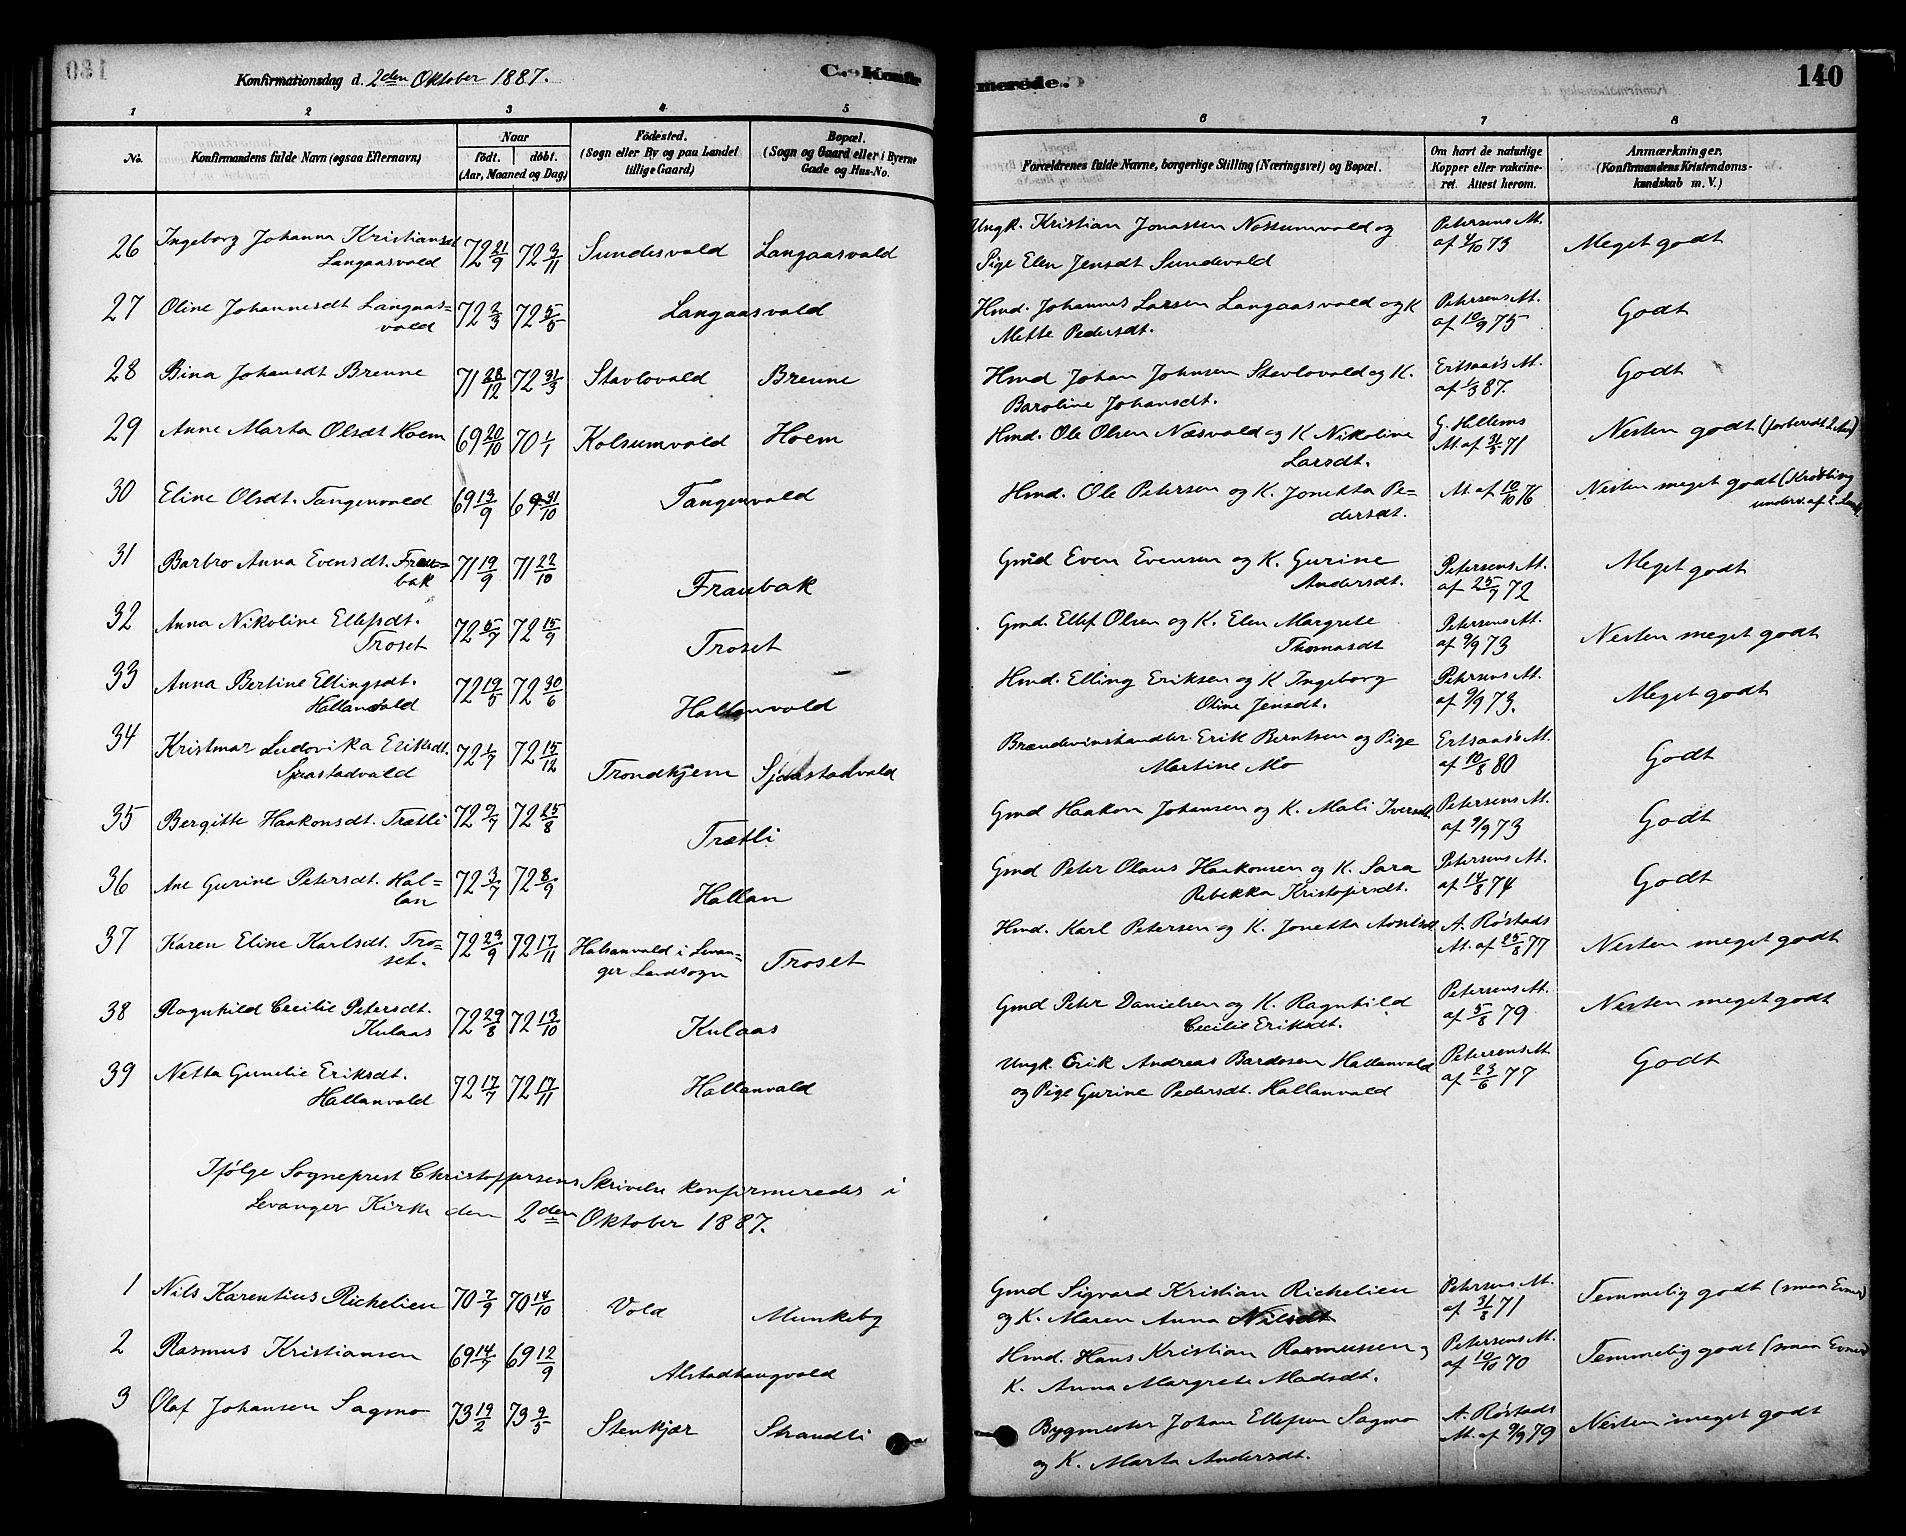 Konfirmationsdag d. 2den Oktober 1887.
C. Konfirmerede.
140
1 2 3 4 5 6 7 8
No.
Konfirmandens fulde Navn (ogsaa Efternavn)
Naar
født. døbt.
(Aar, Maaned og Dag)
Fødested.
(Sogn eller By og paa Landet
tillige Gaard)
Bopæl.
(Sogn og Gaard eller i Byerne
Gade og Hus-No.
Forældrenes fulde Navne, borgerlige Stilling (Næringsvei) og Bopæl.
Om havt de naturlige
Kopper eller vakcine-
ret. Attest herom.
Anmærkninger.
(Konfirmandens Kristendoms-
kundskab m. V.)
26 Ingeborg Johanna Kristiansdt 72 21/9 72 3/11 Sundesvald Langaasvald Ungk. Kristian Jonassen Nossumvald og Petersens At. Meget godt
Langaasvald Pige Elen Jensdt Sundevald af 4/10 73
27 Oline Johannesdt Langaas= 72 2/3 72 5/5 Langaasvald Hmd. Johannes Larsen Langaasvald og K Petersens At. Godt
vald Mette Pedersdt. af 10/9 75
28 Bina Johansdt Brenne 71 28/12 72 31/3 Stavlovald Brenne Hmd Johan Johnsen Stavlovald og K. Ertsaas's At. Godt
Baroline Johansdt. af 1/3 87.
29 Anne Marta Olsdt Hoem 69 20/10 70 1/1 Kolsumvald Hoem Hmd. Ole Olsen Næsvald og K Nikoline G. Hellems Nesten godt
Larsdt. At. af 31/5 71
30 Eline Olsdt. Tangenvald 69 13/9 69 31/10 Tangenvald Hmd. Ole Petersen og K. Jonetta Pe= At. af 10/10 76 Nesten meget godt
dersdt. underv. af
31 Barbro Anna Evensdt. Frau= 71 19/9 71 22/10 Fraubak Gmd Even Evensen og K. Gurine Petersens At. Meget godt
bak Andersdt. af 25/7 72
32 Anna Nikoline Ellefsdt. 72 5/7 72 15/9 Troset Gmd. Ellef Olsen og K. Elen Margrete Petersens At. Nesten meget godt
Troset Thomasdt af 9/9 73
33 Anna Bertine Ellingsdt. 72 19/5 72 30/6 Hallanvald Hmd. Elling Eriksen og K Ingeborg Petersens At. Meget godt
Hallanvald Oline Jensdt. af 9/9 73.
34 Kristmar Ludovika Eriksdt. 72 1/7 72 15/12 Trondhjem Sjaastadvald Brændevinshandler Erik Berntsen og Pige Ertsaas's At. Godt
Sjaastadvald Martine Mo af 10/8 80
35 Bergitte Haakonsdt. Trætli 72 9/7 72 25/8 Trætli Gmd Haakon Johansen og K. Mali Iversdt. Petersens At. Godt
af 9/9 73
36 Ane Gurine Petersdt. Hal= 72 3/7 72 8/9 Hallan Gmd Peter Olaus Haakonsen og K. Sara Petersens At. Godt
lan Rebekka Kristofersdt. af 14/8 74
37 Karen Eline Karlsdt. Tro= 72 23/9 72 17/11 Halsanvald i Levan= Troset Hmd. Karl Petersen og K. Jonetta A. Røstads Nesten meget godt
set. ger Landsogn At. af 25/8 77
38 Ragnhild Cecilie Petersdt. 72 29/8 72 13/10 Kulaas Gmd Peter Danielsen og K. Ragnhild Petersens At. Nesten meget godt
Kulaas Cecilie Eriksdt. af 5/8 79
39 Netta Gunelie Eriksdt. 72 17/7 72 17/11 Hallanvald Ungk. Erik Andreas Bardosen Hallanvald Petersens At Godt
Hallanvald og Pige Gurine Pedersdt. Hallanvald af 23/6 77
Ifølge Sogneprest Christophersens Skrivelse konfirmeredes i
Levanger Kirke den 2den Oktober 1887.
1 Nils Karentius Richelien 70 7/9 70 14/10 Vold Munkeby Gmd Sigvard Kristian Richelien Petersens At. Temmelig godt (smaa Evner)
og K. Maren Anna Nilsdt af 31/8 71
2 Rasmus Kristiansen 69 14/7 69 12/9 Alstadhaugvald Hmd. Hans Kristian Rasmussen og Petersens At. Temmelig godt (smaa Evner)
K. Anna Margrete Madsdt. af 10/10 70
3 Olaf Johansen Sagmo 73 19/2 73 9/5 Stenkjær Strandli Bygmester Johan Ellefsen Sagmo A. Røstads Nesten meget godt
og K. Marta Andersdt. At. af 9/9 79